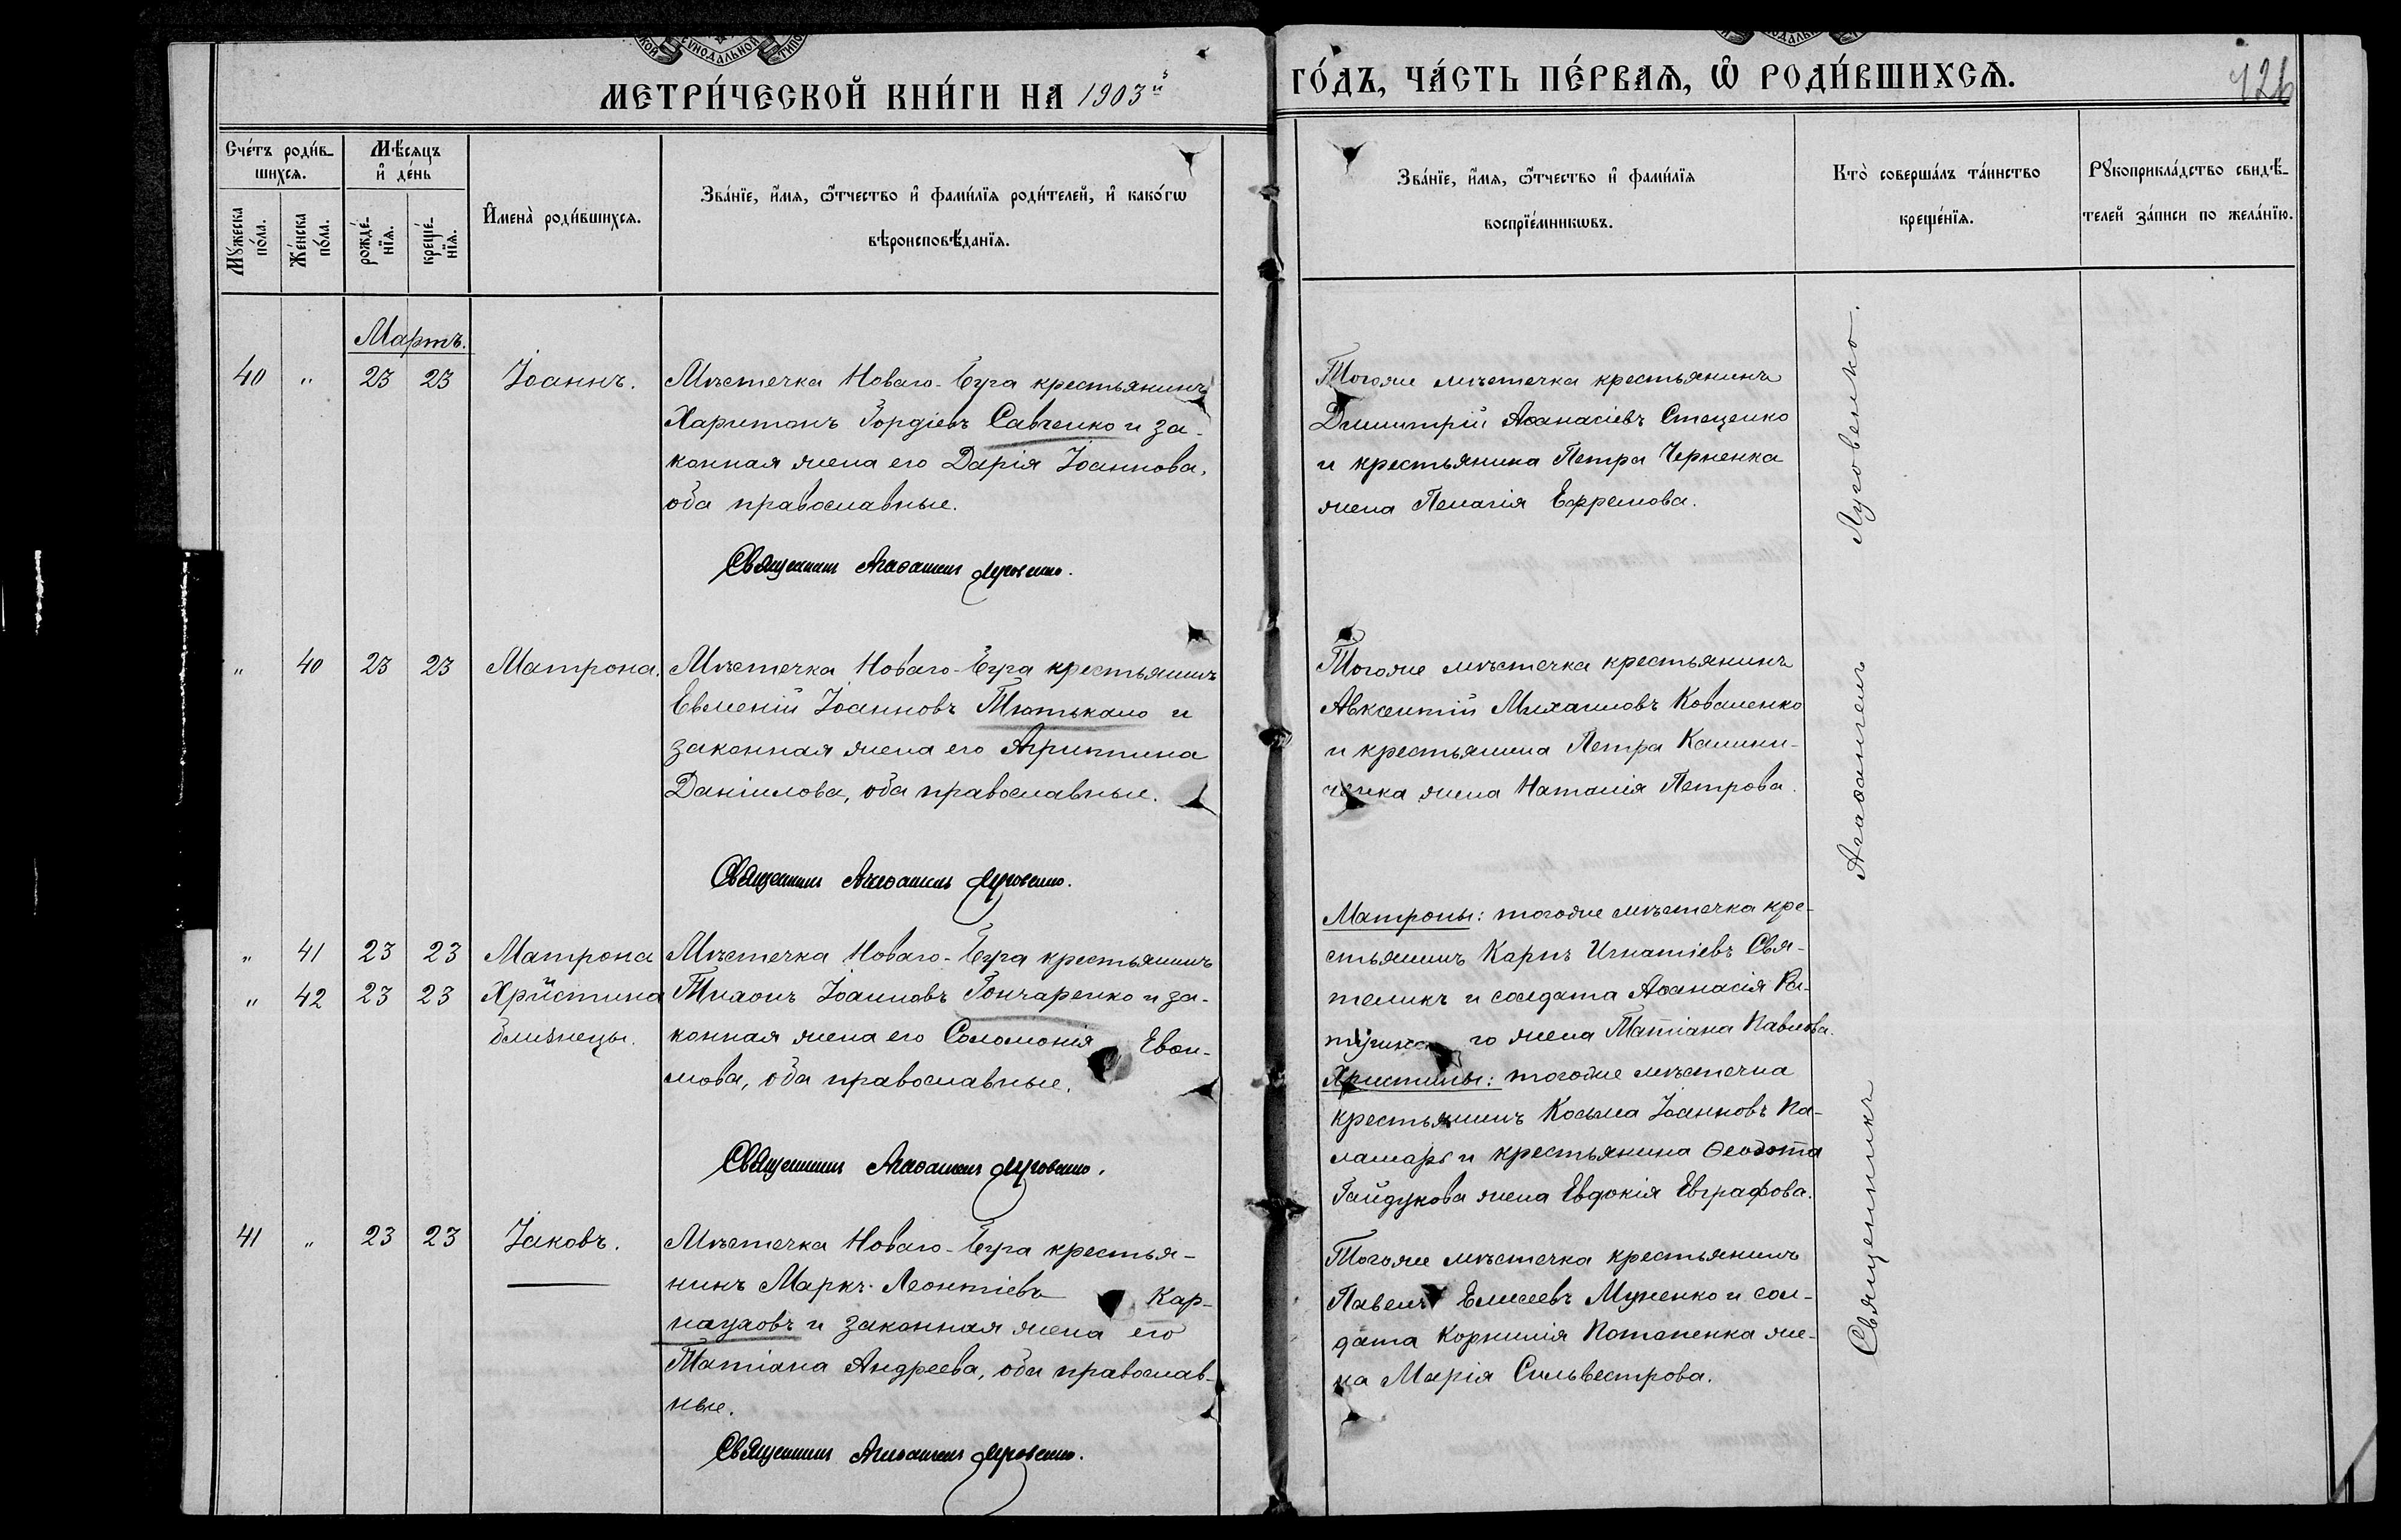 СѴНОДАЛЬНОЙ
МЕТРИ́ЧЕСКОЙ КНИ́ГИ НА 1903й
ГО́ДЪ, ЧА́СТЬ ПЕ́РВАѦ, Ѡ҆ РОДИ́ВШИХСѦ.
426
Сче́тъ роди́в-
шихсѧ.
Мꙋ́жеска
по́ла.
Же́нска
по́ла.
Мѣ́сѧцъ
и҆ де́нь
рожде́-
нїѧ.
креще́-
нїѧ.
И҆мена̀ роди́вшихсѧ.
Зва́нїе, и҆́мѧ, ѻ҆́тчество и҆ фами́лїѧ роди́телей, и҆ како́гѡ
вѣроисповѣ́данїѧ.
Зва́нїе, и҆́мѧ, ѻ҆́тчество и҆ фами́лїѧ
воспрїе́мникѡвъ.
Кто̀ соверша́лъ та́инство
креще́нїѧ.
Рꙋкоприкла́дство свидѣ́-
телей за́писи по жела́нїю.
Мартъ.
40 " 23 23 Іоаннъ.
Мѣстечка Новаго-Буга крестьянинъ
Харитонъ Гордіевъ Савченко и за-
конная жена его Дарія Іоаннова,
оба православные.
Священникъ Агаѳангелъ Луговенко.
Тогоже мѣстечка крестьянинъ
Димитрій Аѳанасіевъ Стеценко
и крестьянина Петра Черненка
жена Пелагія Ефремова.
" 40 23 23 Матрона.
Мѣстечка Новаго-Буга крестьянинъ
Евменій Іоанновъ Тютькало и
законная жена его Агриппина
Даніилова, оба православные.
Священникъ Агаѳангелъ Луговенко.
Тогоже мѣстечка крестьянинъ
Авксентій Михаиловъ Коваленко
и крестьянина Петра Калини-
ченка жена Наталія Петрова.
" 41 23 23 Матрона
" 42 23 23 Христина
близнецы.
Мѣстечка Новаго-Буга крестьянинъ
Тихонъ Іоанновъ Гончаренко и за-
конная жена его Соломонія Евѳи-
мова, оба православные.
Священникъ Агаѳангелъ Луговенко.
Матроны: тогоже мѣстечка кре-
стьянинъ Карпъ Игнатіевъ Свя-
теликъ и солдата Аѳанасія Ра-
го жена Татіана Павлова.
Христины: тогоже мѣстечка
крестьянинъ Косьма Іоанновъ Па-
ламарь и крестьянина Ѳеодота
Гайдукова жена Евдокія Евграфова.
41 " 23 23 Іаковъ.
Мѣстечка Новаго-Буга крестья-
нинъ Маркъ Леонтіевъ Кар-
науховъ и законная жена его
Татіана Андреева, оба православ-
ные.
Священникъ Агаѳангелъ Луговенко.
Тогоже мѣстечка крестьянинъ
Павелъ Елисеевъ Муненко и сол-
дата Корнилія Потапенка же-
на Марія Сильвестрова.
Священникъ Агаѳангелъ Луговенко.